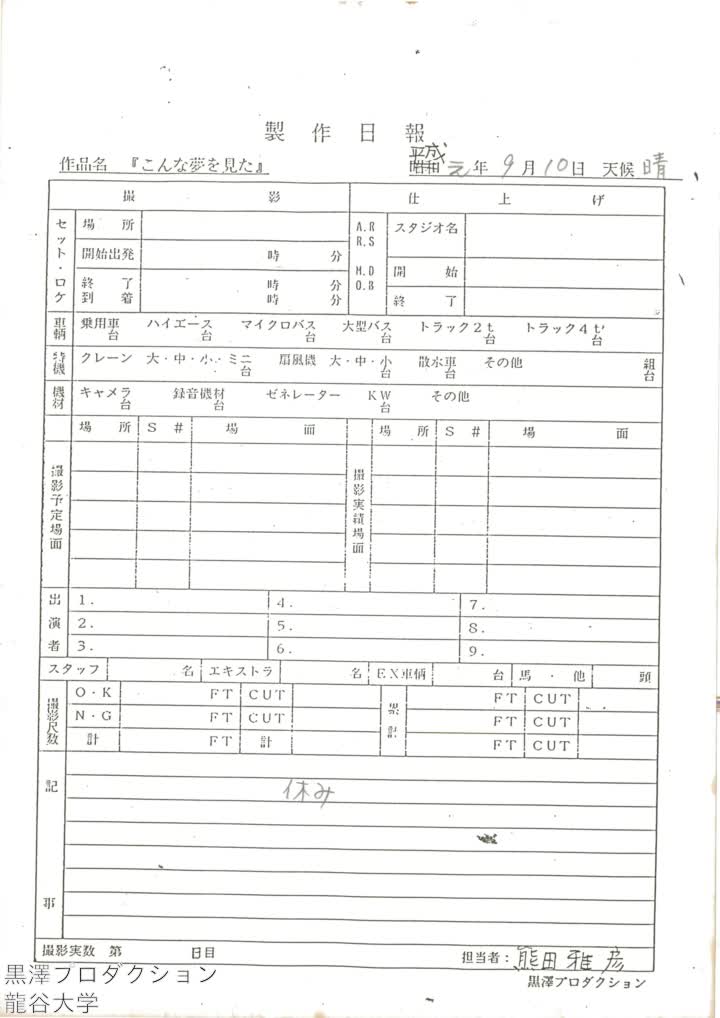 製作日報
作品名 『こんな夢を見た』 昭和 平成 元年 9月10日 天候 晴
撮影 仕上げ
セット・ロケ 場所 A.R R.S スタジオ名
開始出発 時 分 M.D O.B 開始
終了 時 分 終了
到着 時 分
車輌 乗用車 台 ハイエース 台 マイクロバス 台 大型バス 台 トラック2t 台 トラック4t 台
特機 クレーン 大・中・小・ミニ 台 扇風機 大・中・小 台 散水車 台 その他 組 台
機材 キャメラ 台 録音機材 台 ゼネレーター KW 台 その他
場所 S# 場面 場所 S# 場面
撮影予定場面 撮影実績場面
出演者 1. 4. 7.
2. 5. 8.
3. 6. 9.
スタッフ 名 エキストラ 名 EX車輌 台 馬・他 頭
撮影尺数 O・K FT CUT 累計 FT CUT
N・G FT CUT FT CUT
計 FT 計 FT CUT
記事
休み
撮影実数 第 日目 担当者: 熊田雅彦
黒澤プロダクション
黒澤プロダクション
龍谷大学